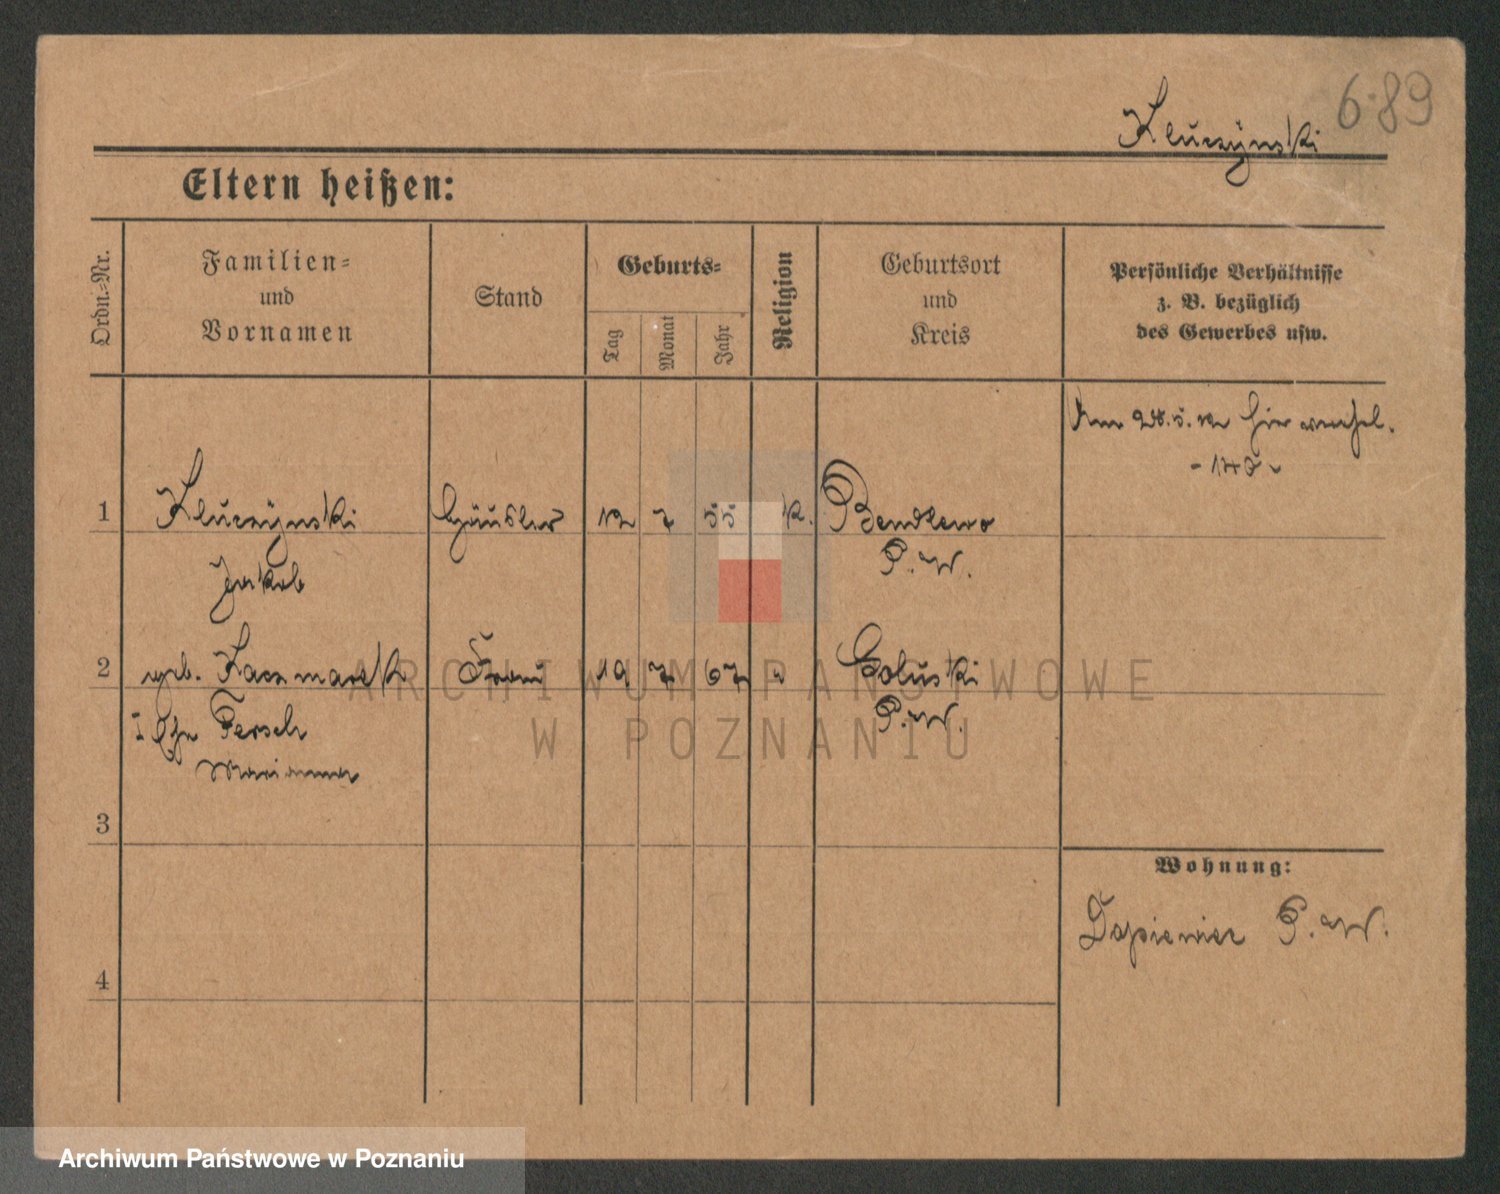 6.89
Kluczynski
Eltern heißen:
Ordn.-Nr.
Familien-
und
Vornamen
Stand
Geburts-
Tag
Monat
Jahr
Religion
Geburtsort
und
Kreis
Persönliche Verhältnisse
z. B. bezüglich
des Gewerbes usw.
Am 28.5.12 hier
1 Kluczynski Häusler 12 7 55 K. Bendlewo
Jakob P. W.
2 geb. Kaczmarek Frau 19 7 67 " Goluski
I Ehe Fersch P. W.
Marianna
3
4
Wohnung:
Sapienica P. W.
ARCHIWUM PAŃSTWOWE
W POZNANIU
Archiwum Państwowe w Poznaniu